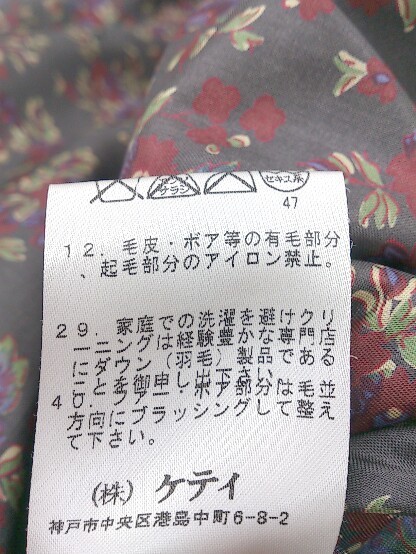 エンソ
サラシ
セキユ系
47
12. 毛皮・ボア等の有毛部分
、起毛部分のアイロン禁止。
29. 家庭での洗濯を避けクリ
ーニングは経験豊かな専門店
にダウン(羽毛)製品である
ことを御申し出下さい。
40. ファー・ボア部分は毛並
方向にブラッシングして整え
て下さい。
(株) ケティ
神戸市中央区港島中町6-8-2